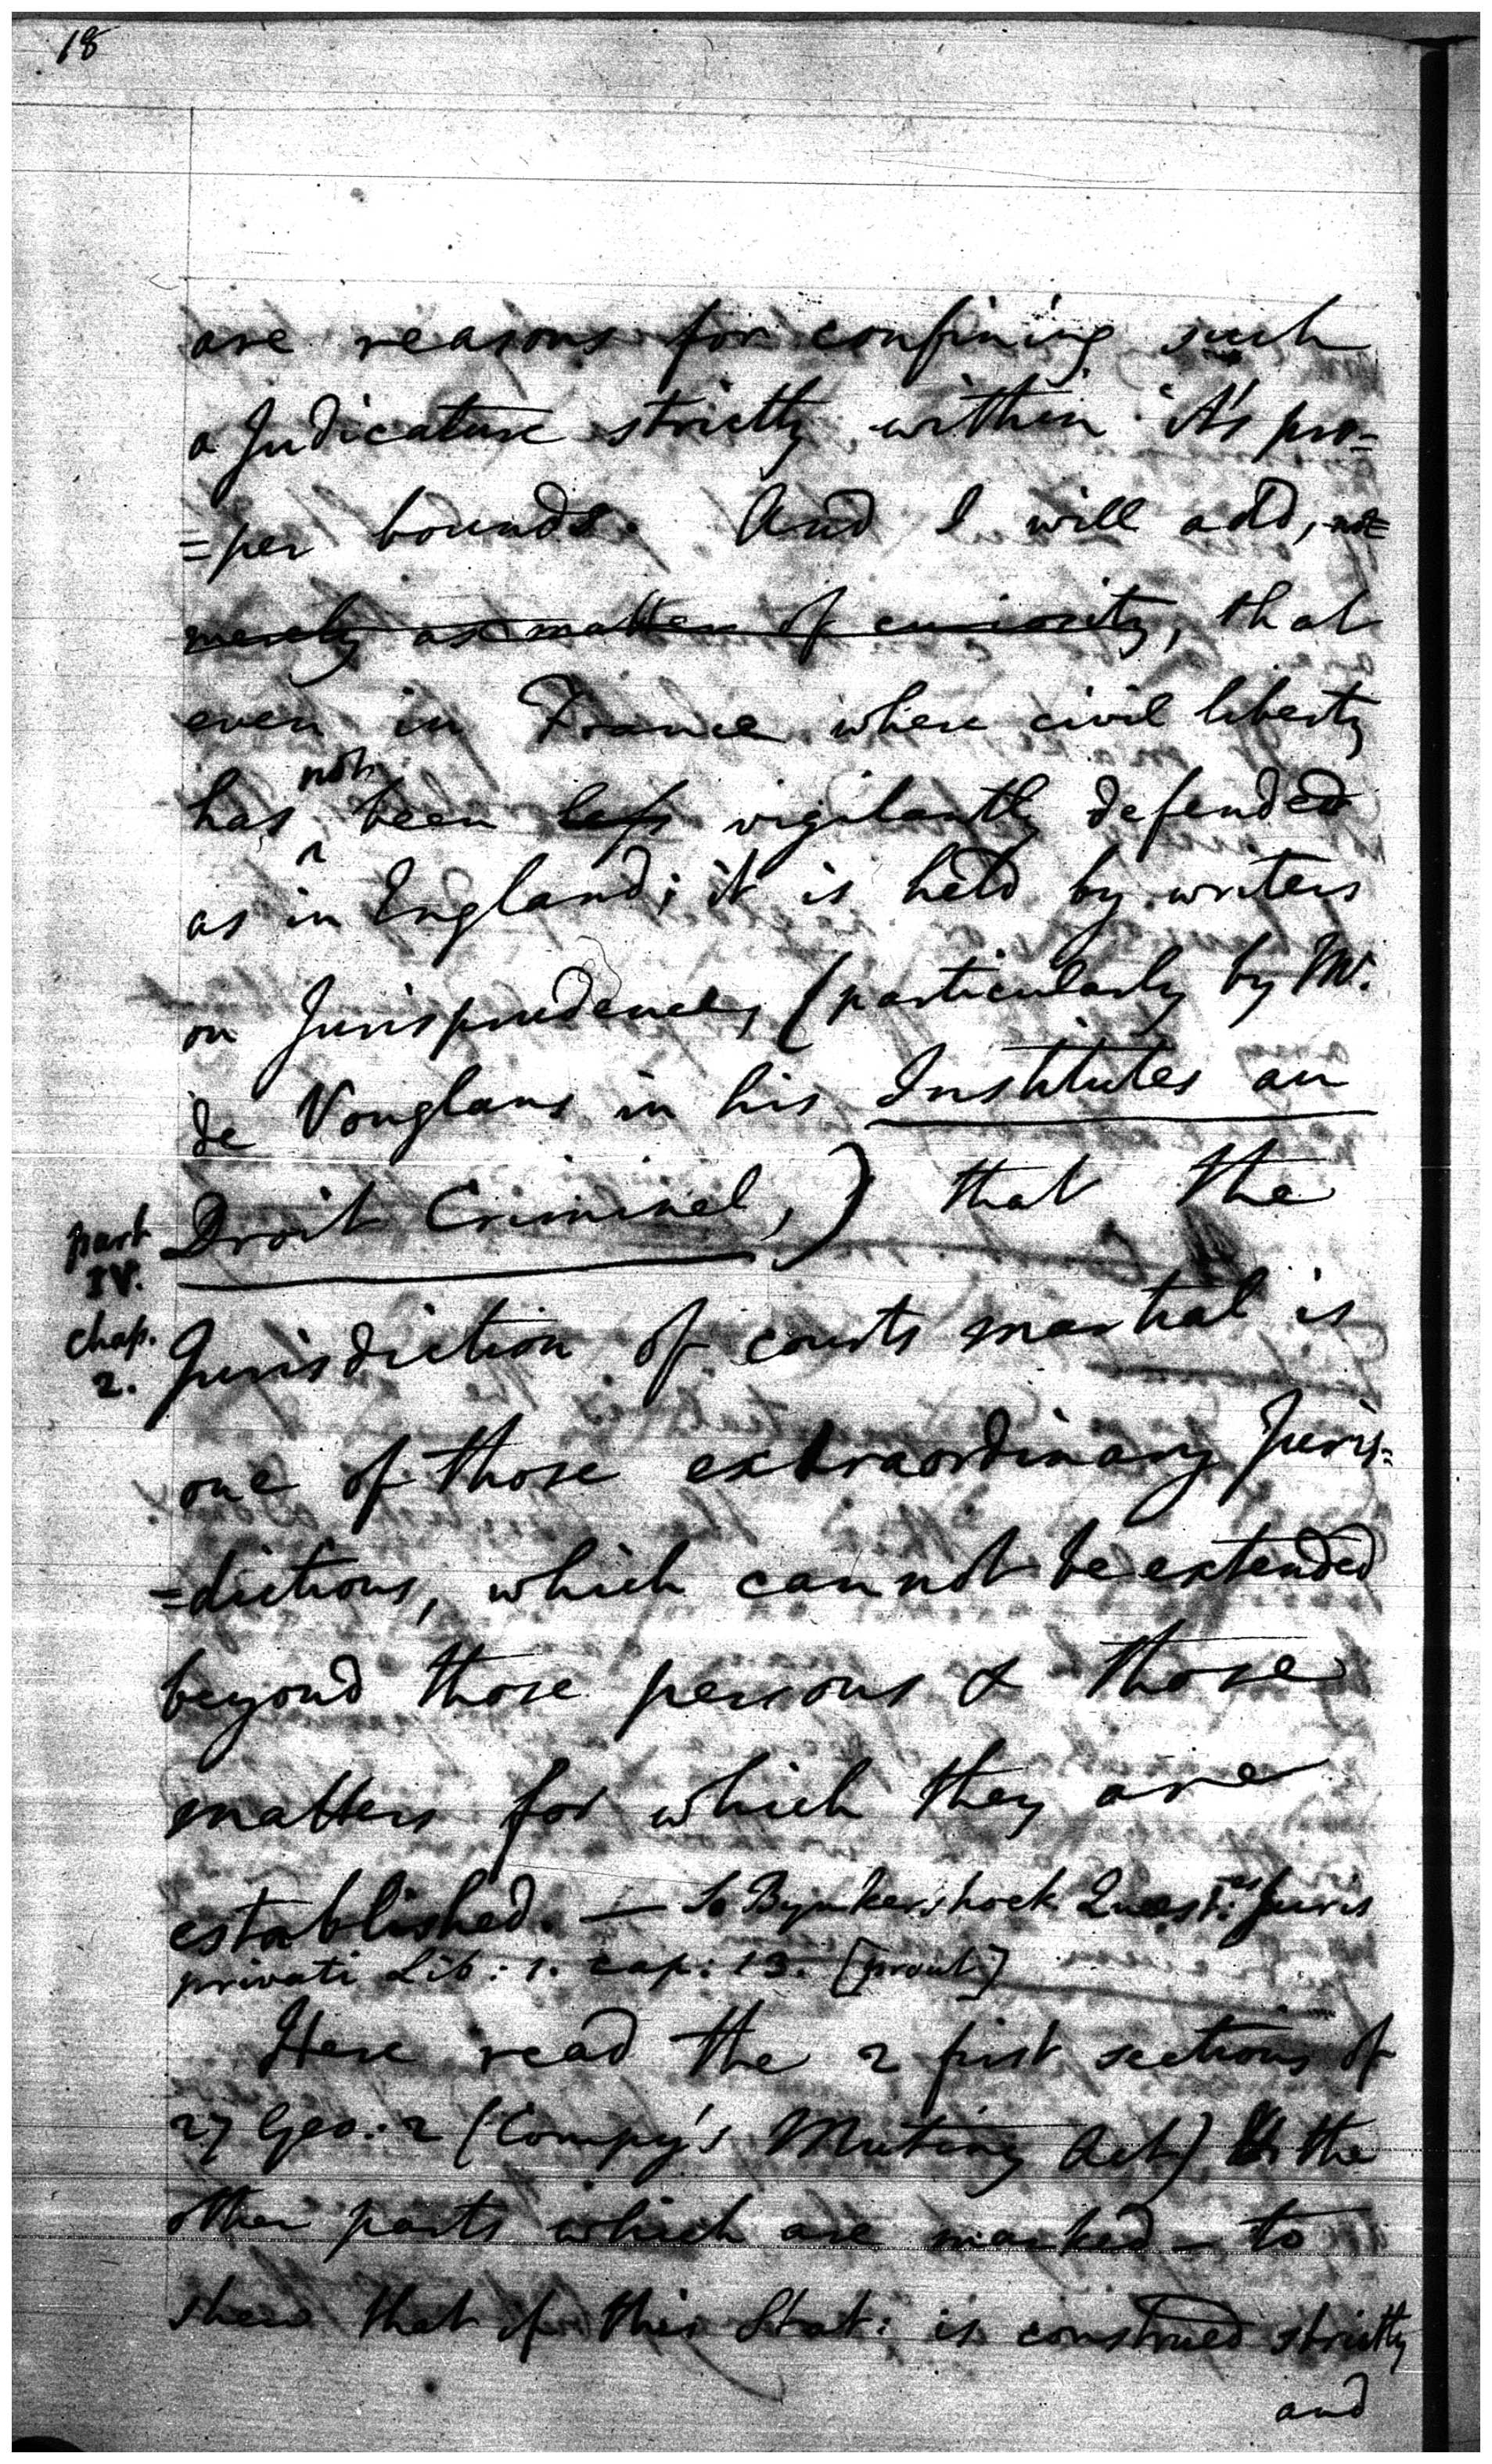 18
are reasons for confining such
a Judicature strictly within it's pro=
=per bounds. And I will add, not
merely as matter of curiosity, that
even in France where civil liberty
not
has been less vigilantly defended
as in England; it is held by writers
on Jurisprudence, (particularly by Mr.
de Vouglans in his Institutes au
Droit Criminel,) that the
part
IV.
chap.
2.
Jurisdiction of courts martial is
one of those extraordinary Juris=
=dictions, which cannot be extended
beyond those persons & those
matters for which they are
established. — So Bynkershoek Quest:es Juris
privati Lib: 1. cap: 13. [prout]
Here read the 2 first sections of
27 Geo: 2 (Compy's Mutiny Act) & the
other parts which are marked – to
shew that if this Stat: is construed strictly
and